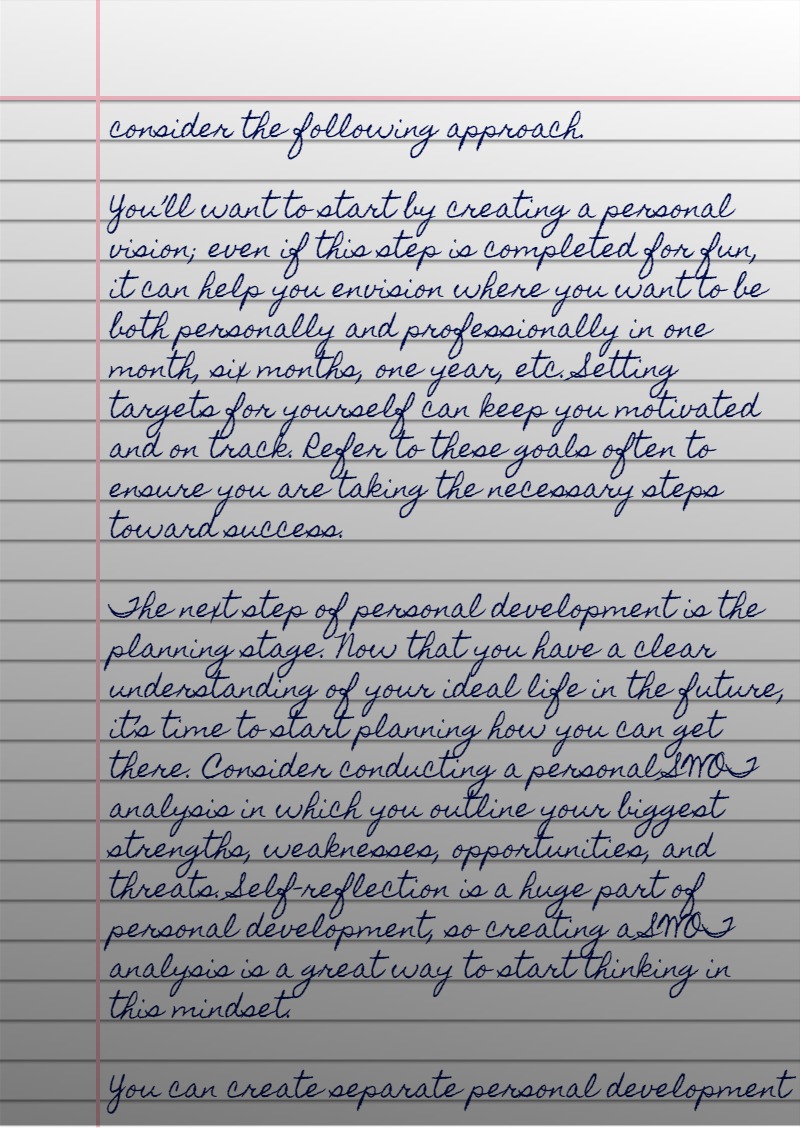 consider the following approach.
You'll want to start by creating a personal
vision; even if this step is completed for fun,
it can help you envision where you want to be
both personally and professionally in one
month, six months, one year, etc. Setting
targets for yourself can keep you motivated
and on track. Refer to these goals often to
ensure you are taking the necessary steps
toward success.
The next step of personal development is the
planning stage. Now that you have a clear
understanding of your ideal life in the future,
it's time to start planning how you can get
there. Consider conducting a personal SWOT
analysis in which you outline your biggest
strengths, weaknesses, opportunities, and
threats. Self-reflection is a huge part of
personal development, so creating a SWOT
analysis is a great way to start thinking in
this mindset.
You can create separate personal development